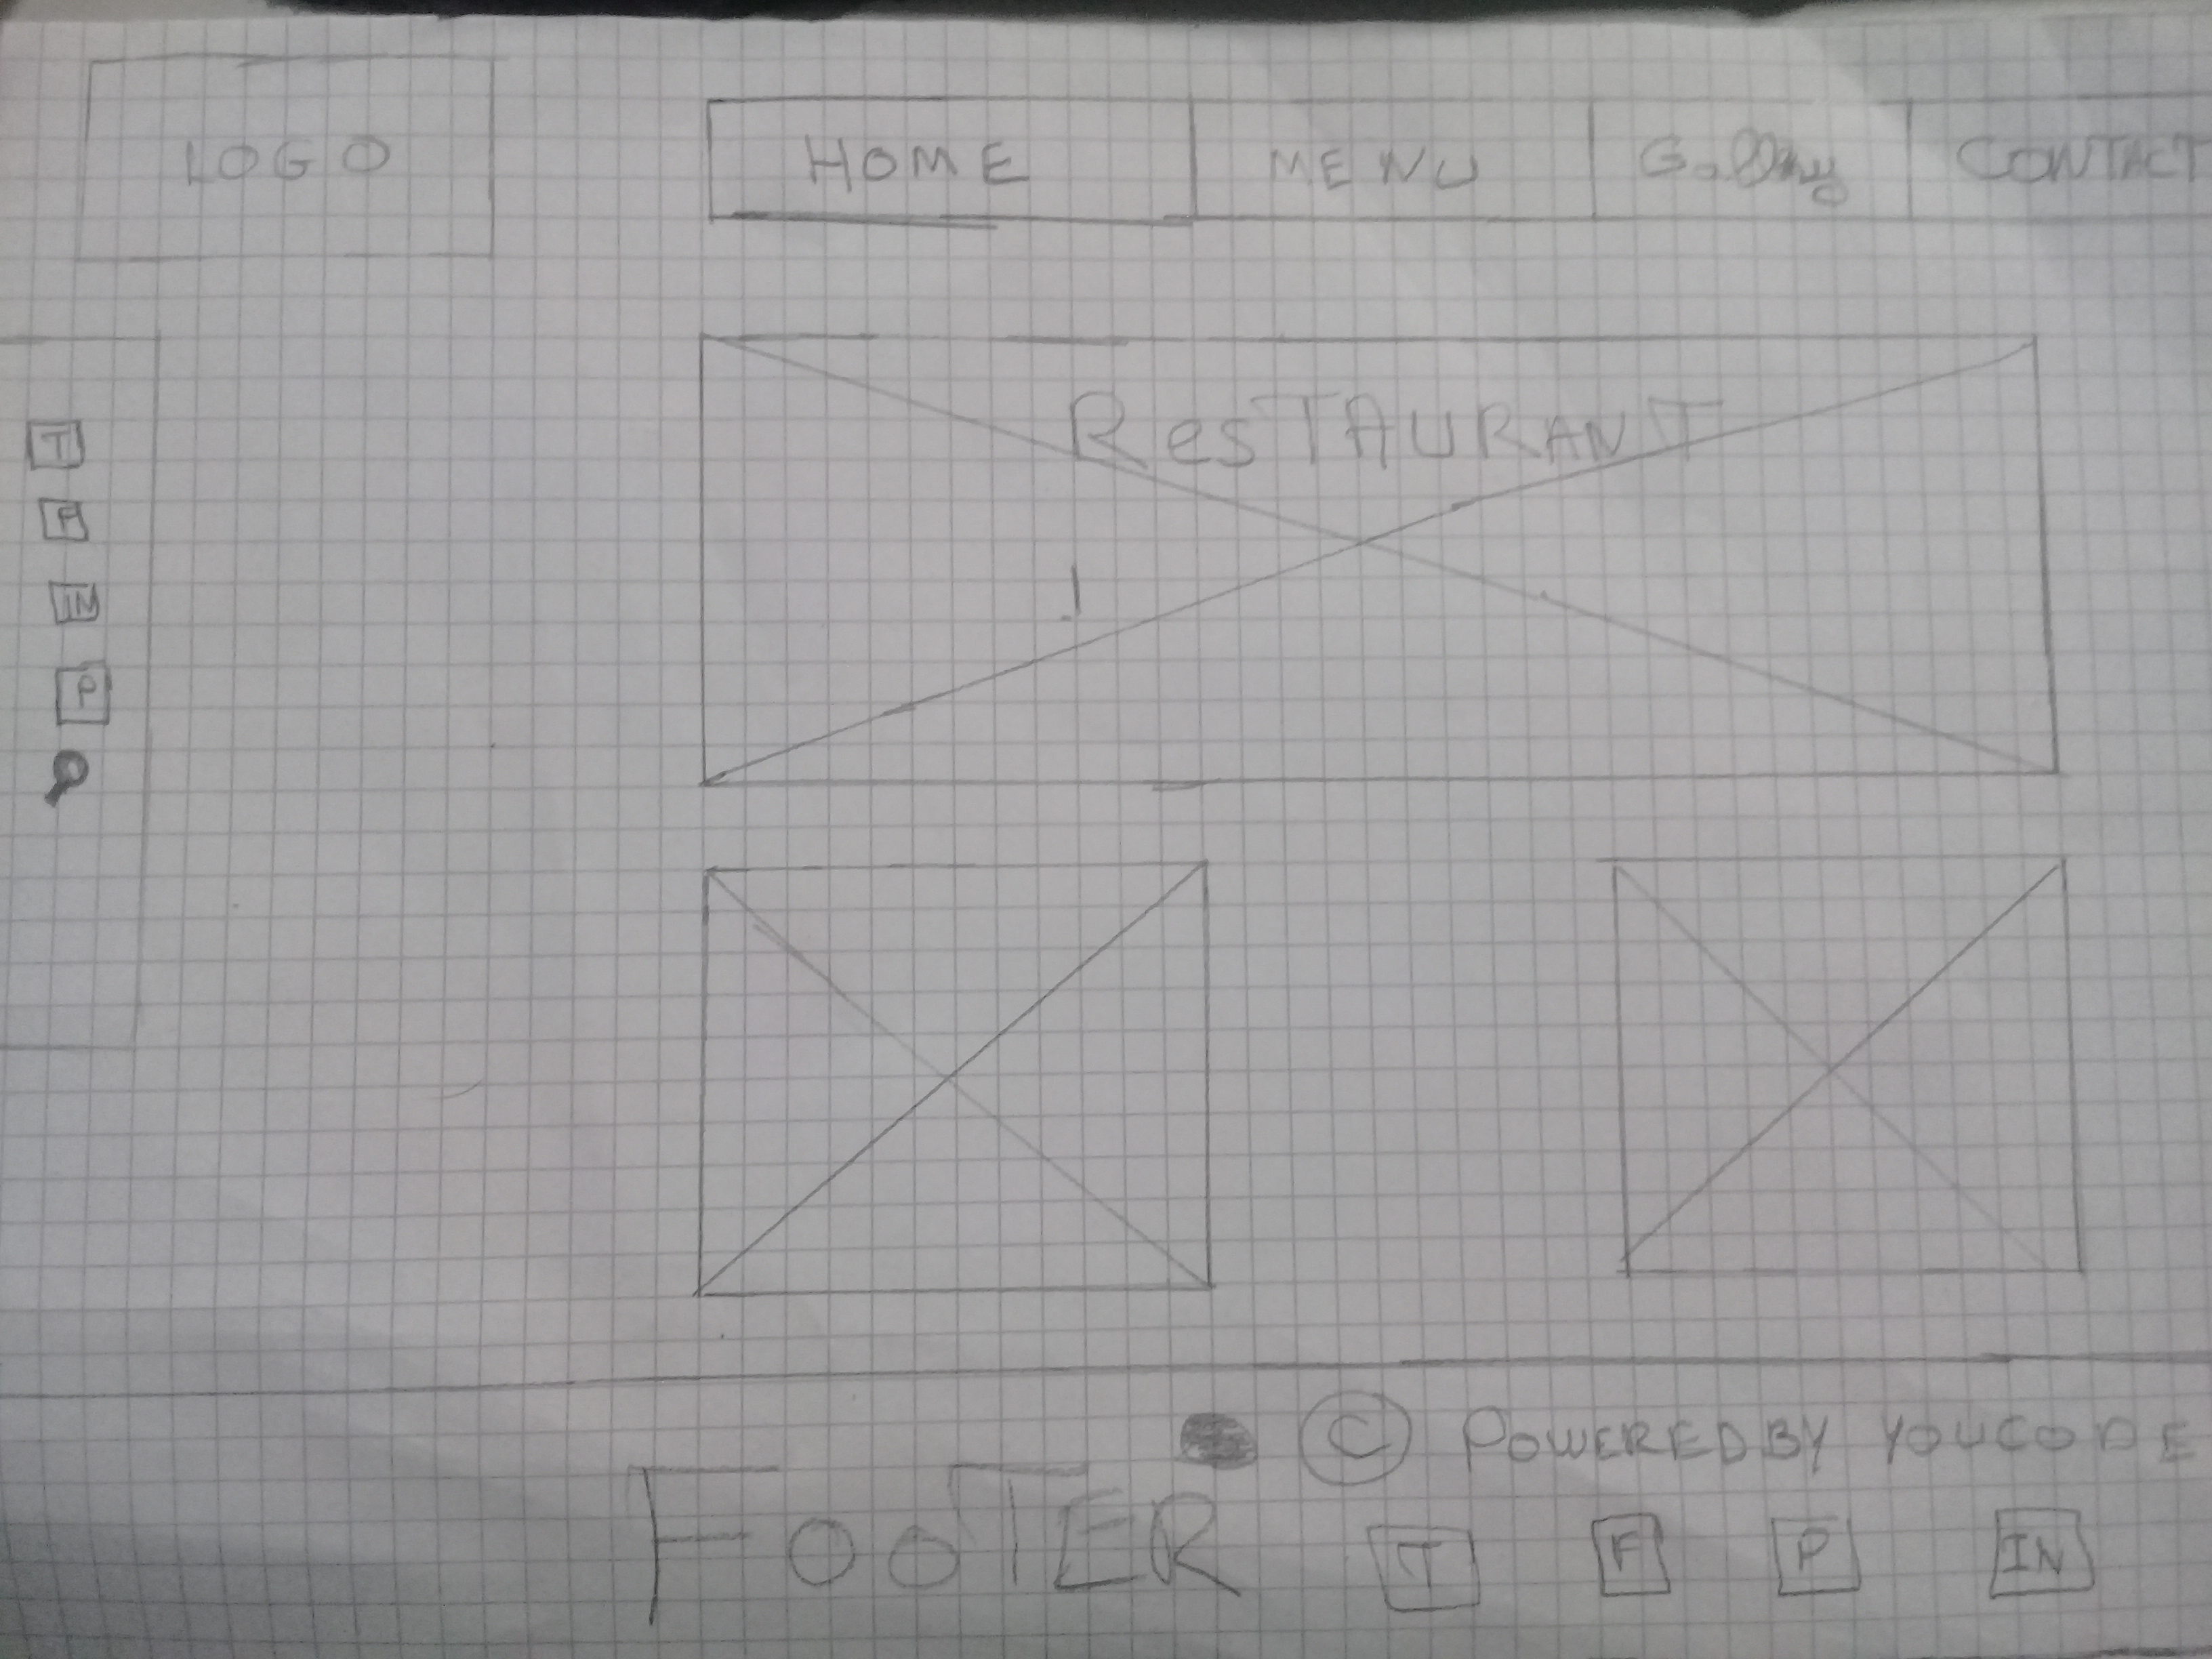 LOGO
HOME MENU Gallery CONTACT
ResTAURANT
T
F
IN
P
© POWERED BY YOUCODE
FOOTER
T F P IN